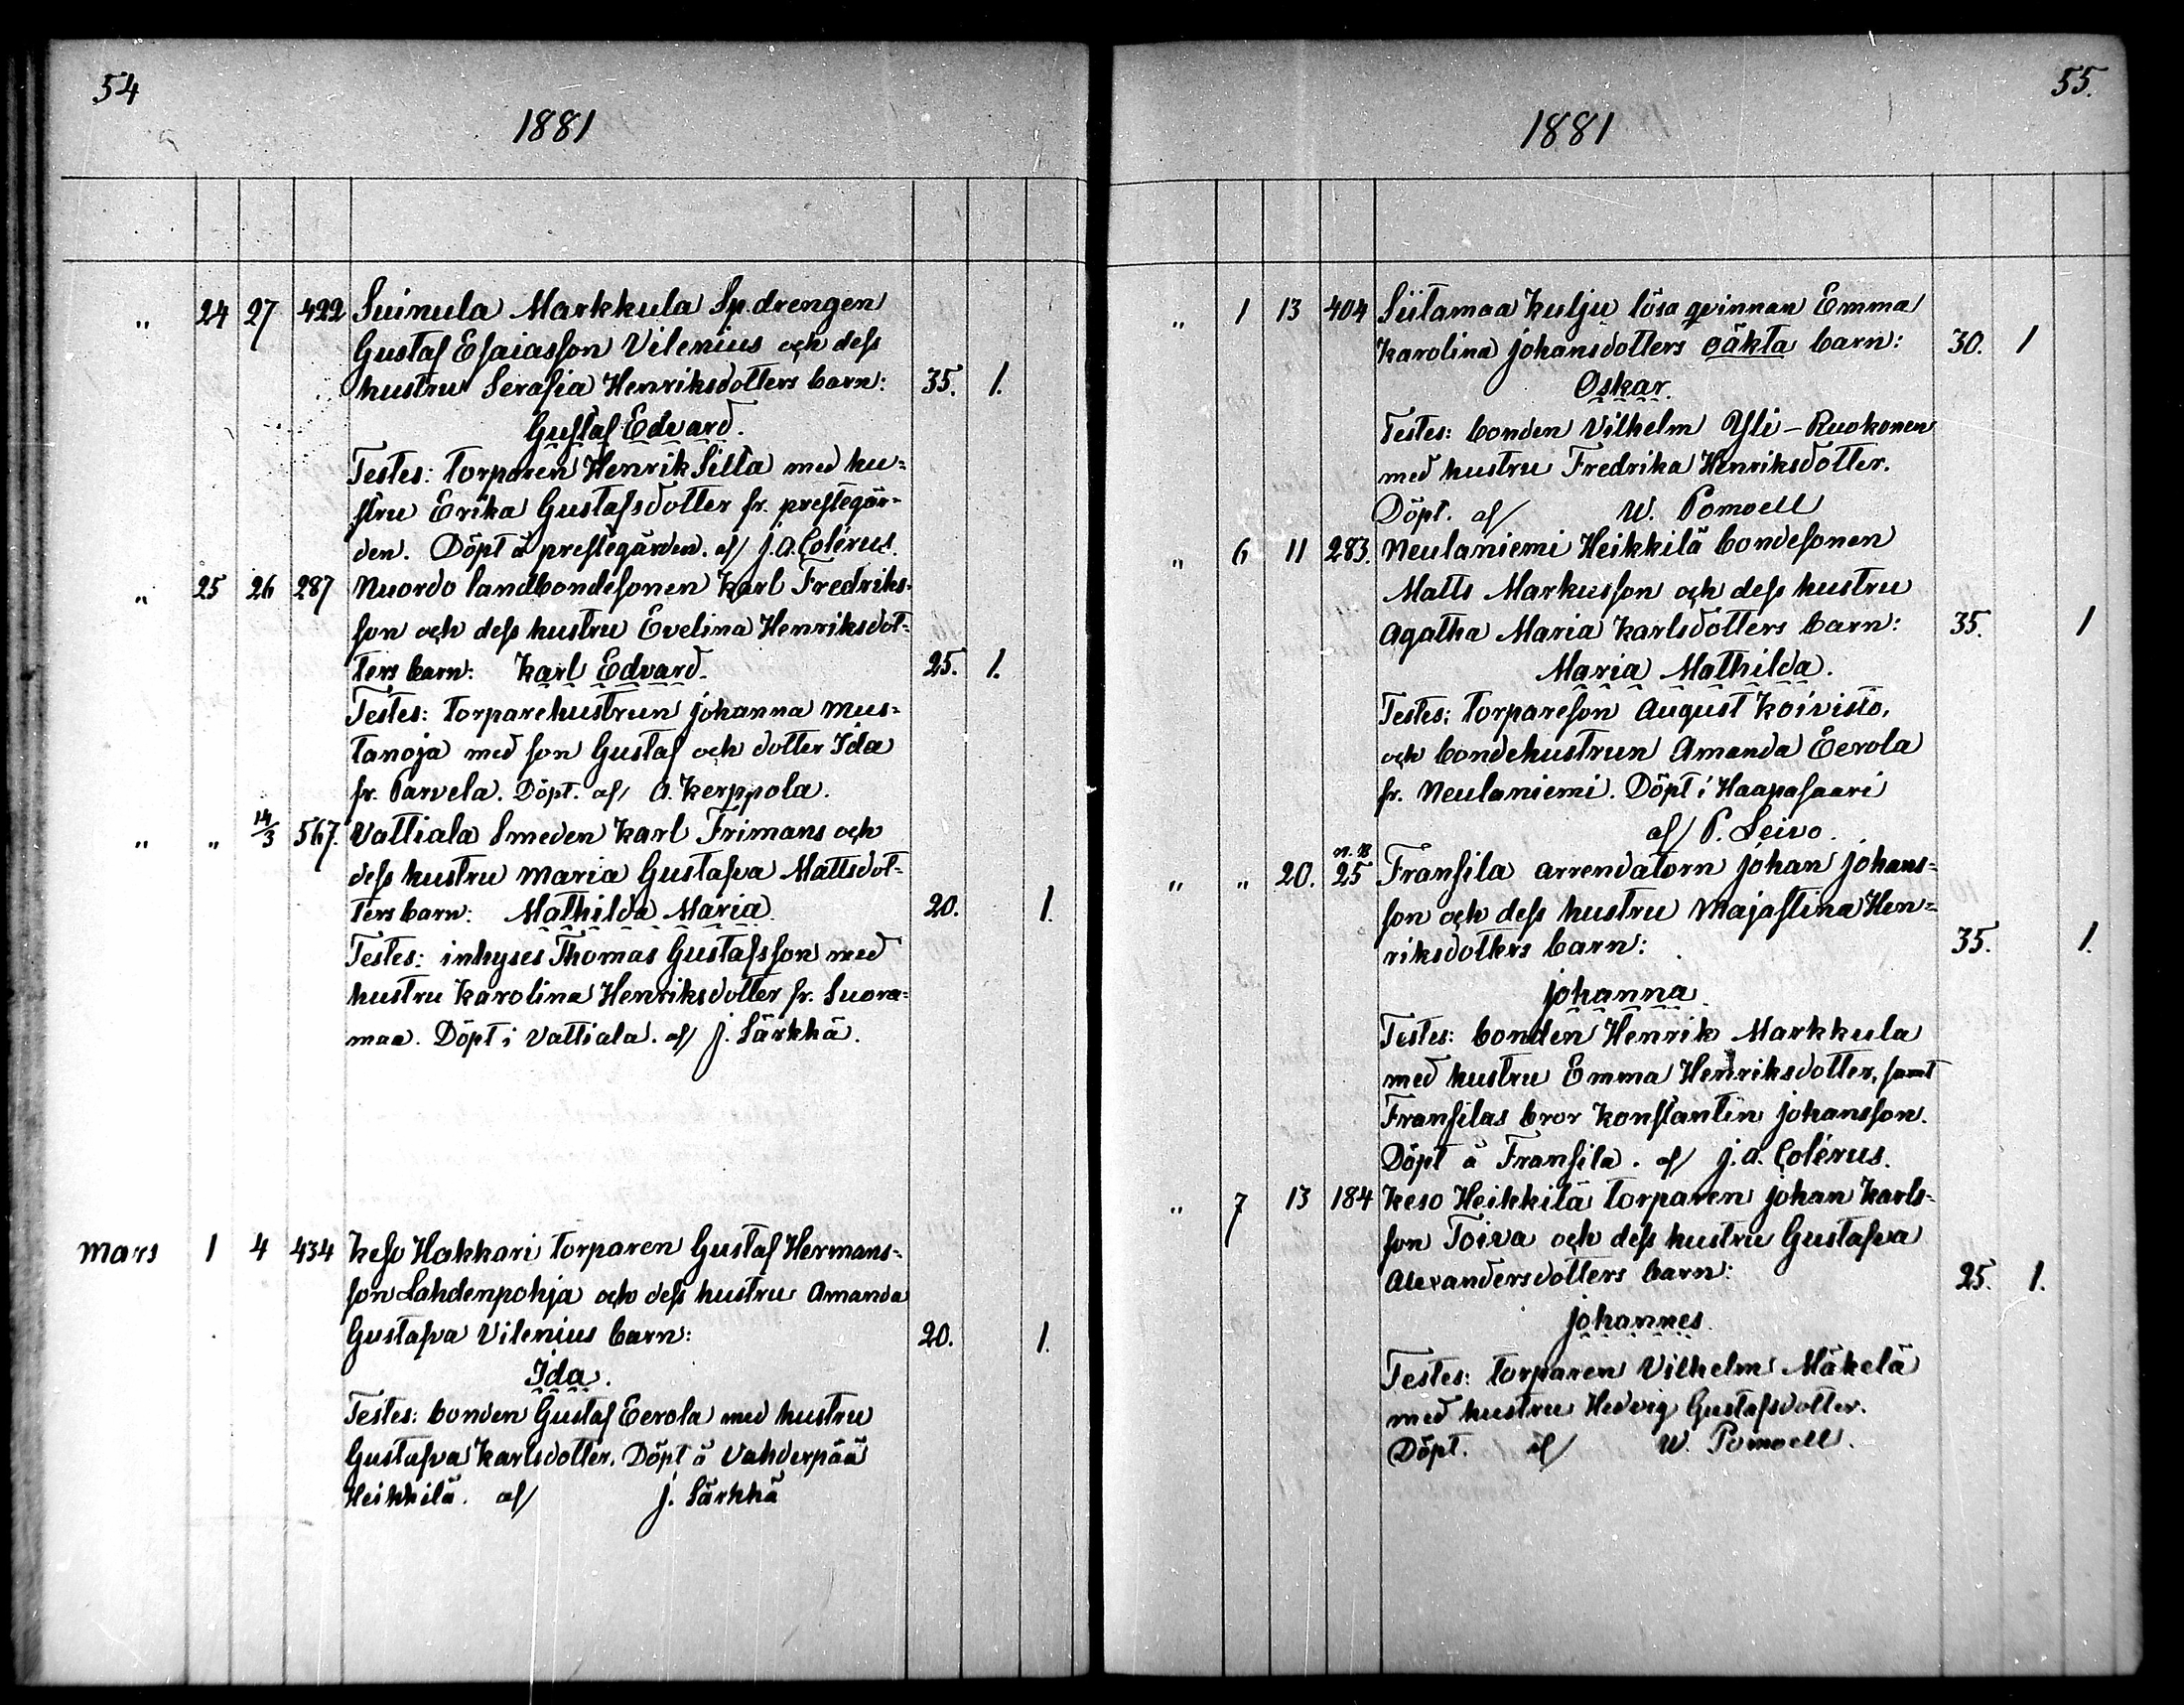 54
1881
" 24 27 422 Suinula Markkula Sp. drengen
Gustaf Esaiasson Vilenius och dess
hustru Serafia Henriksdotters barn: 35. 1.
Gustaf Edvard.
Testes: torparen Henrik Silla med hu-
stru Erika Gustafsdotter fr. prestegår-
den. Döpt å prestegården. af J. A. Colérus.
" 25 26 287 Nuordo landbondesonen Karl Fredriks-
son och dess hustru Evelina Henriksdot-
ters barn: Karl Edvard. 25. 1.
Testes: torparehustrun Johanna Mus-
tanoja med son Gustaf och dotter Ida
fr. Parvela. Döpt. af A. Kerppola.
" " 14/3 567. Vattiala Smeden Karl Frimans och
dess hustru Maria Gustafva Mattsdot-
ters barn: Mathilda Maria 20. 1.
Testes: inhyses Thomas Gustafsson med
hustru Karolina Henriksdotter fr. Suora-
maa. Döpt i Vattiala. af J. Särkkä.
Mars 1 4 434 Keso Hakkari torparen Gustaf Hermans-
son Lahdenpohja och dess hustru Amanda
Gustafva Vilenius barn: 20. 1.
Ida.
Testes: bonden Gustaf Eerola med hustru
Gustafva Karlsdotter. Döpt å Vahderpää
Heikkilä. af J. Särkkä
55.
1881
" 1 13 404 Siitamaa Kulju lösa qvinnan Emma
Karolina Johansdotters oäkta barn: 30. 1
Oskar.
Testes: bonden Vilhelm Yli-Ruokonen
med hustru Fredrika Henriksdotter.
Döpt. af W. Pomoell
" 6 11 283. Neulaniemi Heikkilä bondesonen
Matts Markusson och dess hustru
Agatha Maria Karlsdotters barn: 35. 1
Maria Mathilda.
Testes: torpareson August Koivisto,
och bondehustrun Amanda Eerola
fr. Neulaniemi. Döpt i Haapasaari
af P. Leivo.
" " 20. 25 Fransila arrendatorn Johan Johans-
son och dess hustru Majastina Hen-
riksdotters barn: 35. 1.
Johanna
Testes: bonden Henrik Markkula
med hustru Emma Henriksdotter, samt
Fransilas bror Konstantin Johansson.
Döpt å Fransila. af J. A. Colérus.
" 7 13 184 Keso Heikkilä torparen Johan Karls-
son Toiva och dess hustru Gustafva
Alexandersdotters barn: 25. 1.
Johannes
Testes: torparen Vilhelm Mäkelä
med hustru Hedvig Gustafsdotter.
Döpt. af W. Pomoell.